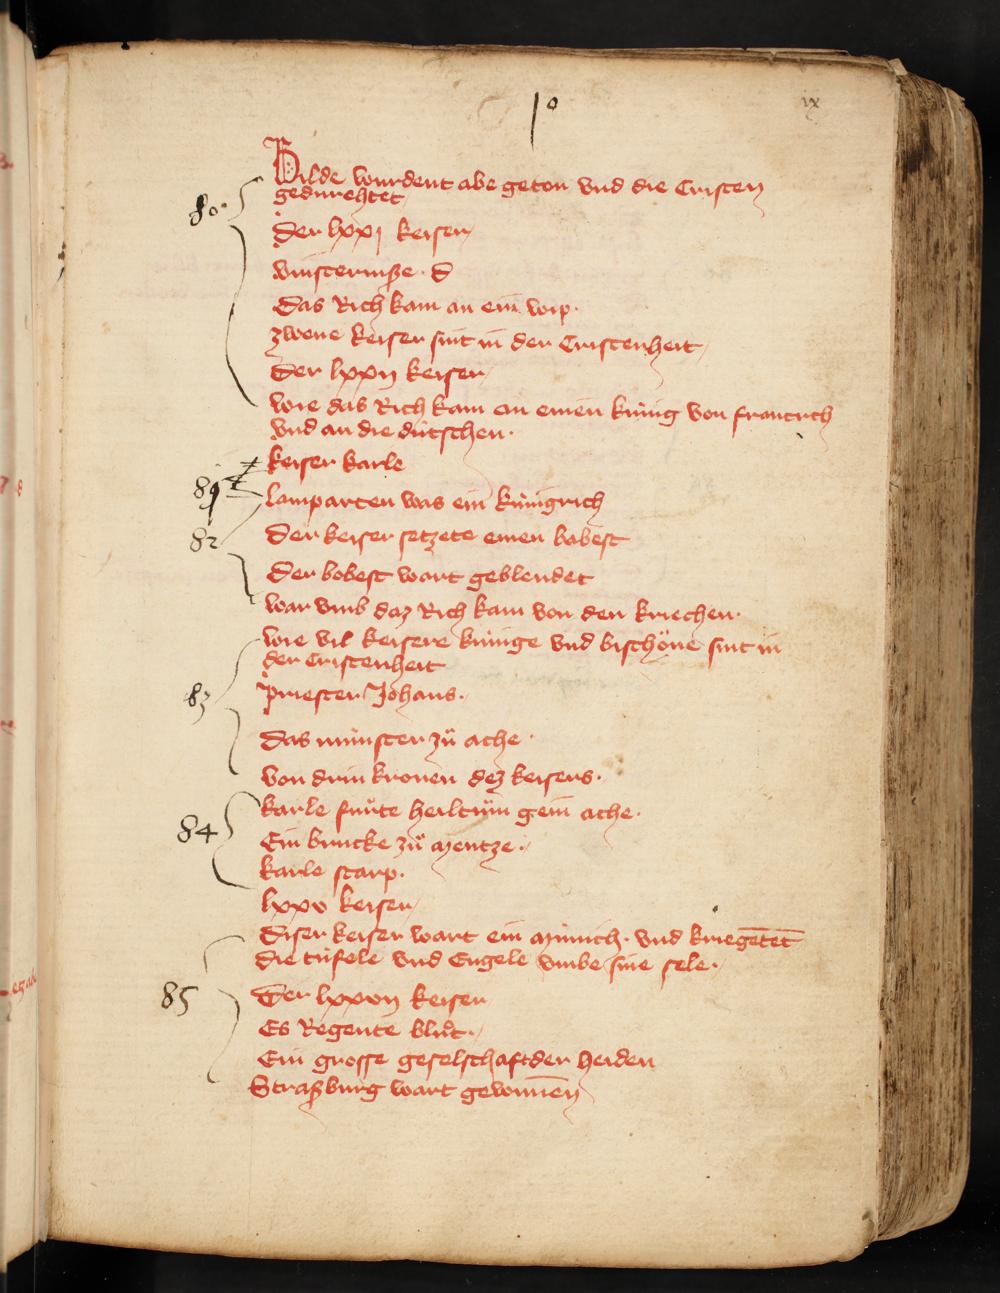 10
ix
Bilde wurdent abe geton vnd die Cristen
gedurehtet
80
der lxxj keiser
vinsternisze. d
das Rich kam an ein wip.
zwene keiser sint in der Cristenheit
Der lxxij keiser
wie das Rich kam an einen kúnig von franckrich
vnd an die dútschen.
keiser karle
81
lamparten was ein kúnigrich
82
Der keiser setzete einen bobest
Der bobest wart geblendet
war vmb daz Rich kam von den kriechen.
wie vil keisere kúnige vnd bischöue sint in
der Cristenheit
83
priester Johans.
das múnster zů ache
von drin kronen dez keisers.
karle fůrte heiltům gein ache.
84
Ein brucke zů mentze.
karle starp.
lxxv keiser
diser keiser wart ein múnich. vnd kriegetēt
die túfele vnd Engele vmbe sine sele.
85
Der lxxvij keiser
Es Regente blůt.
Ein grosse geselschaft der heiden
Straszburg wart gewunnen